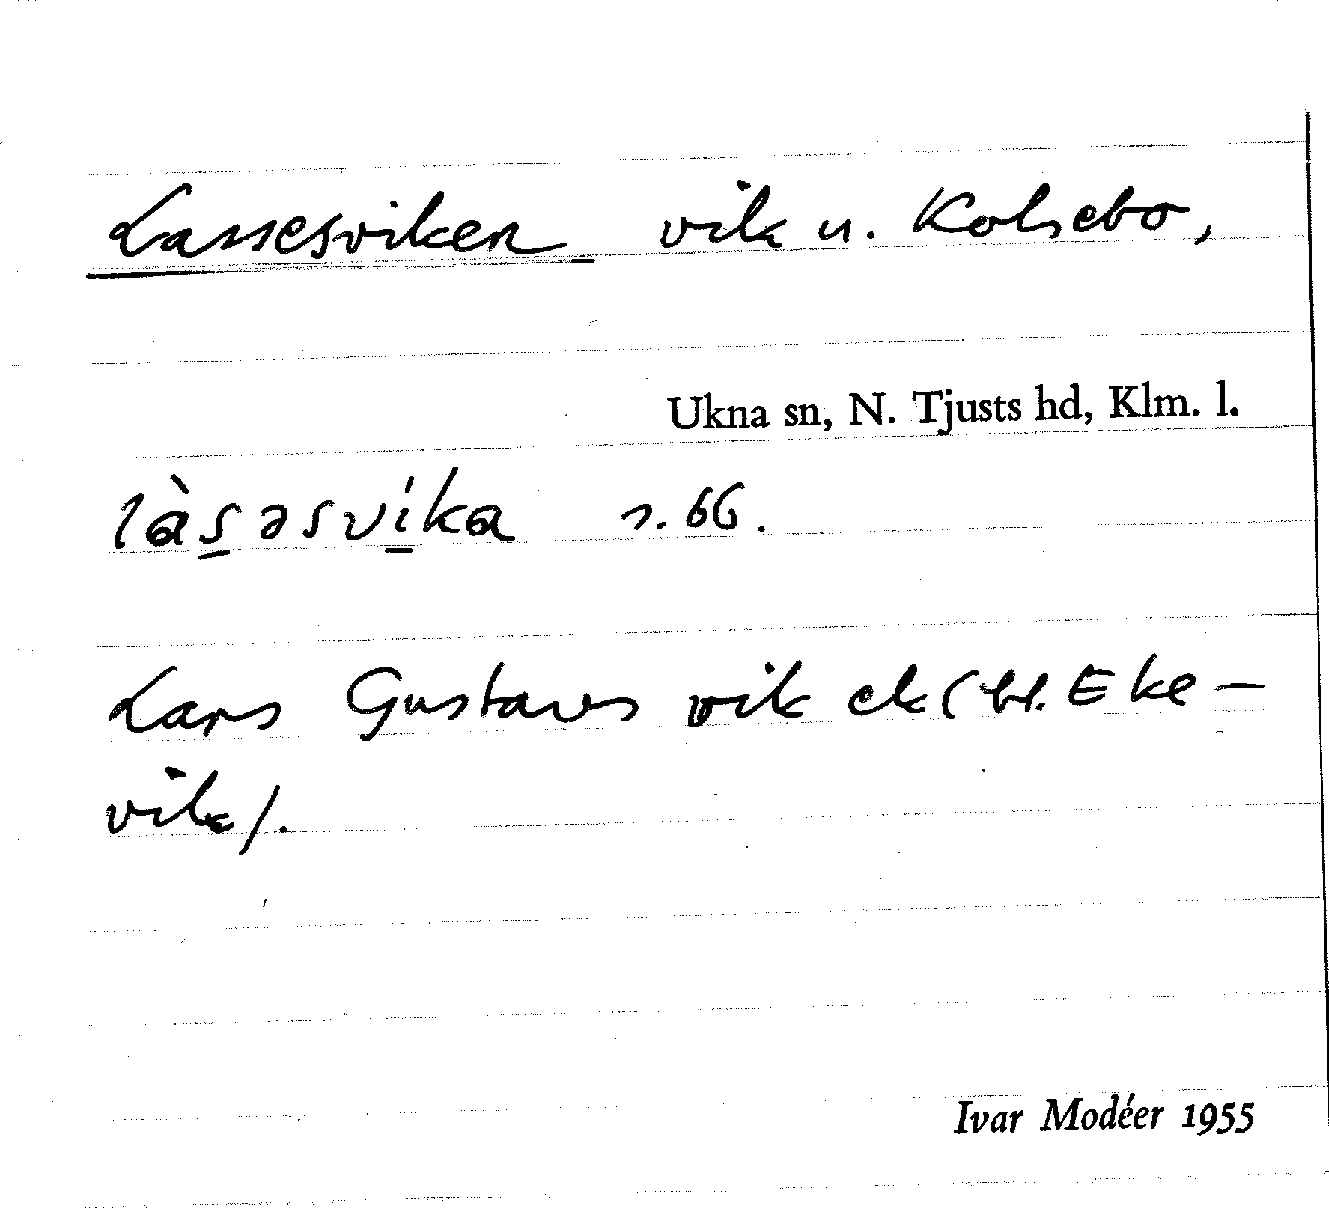 Lassesviken vik u. Kolsebo,
Ukna sn, N. Tjusts hd, Klm. l.
làs̲əsvi̲ka s. 66.
Lars Gustavs vik ek (bl. Eke-
vik/.
Ivar Modéer 1955